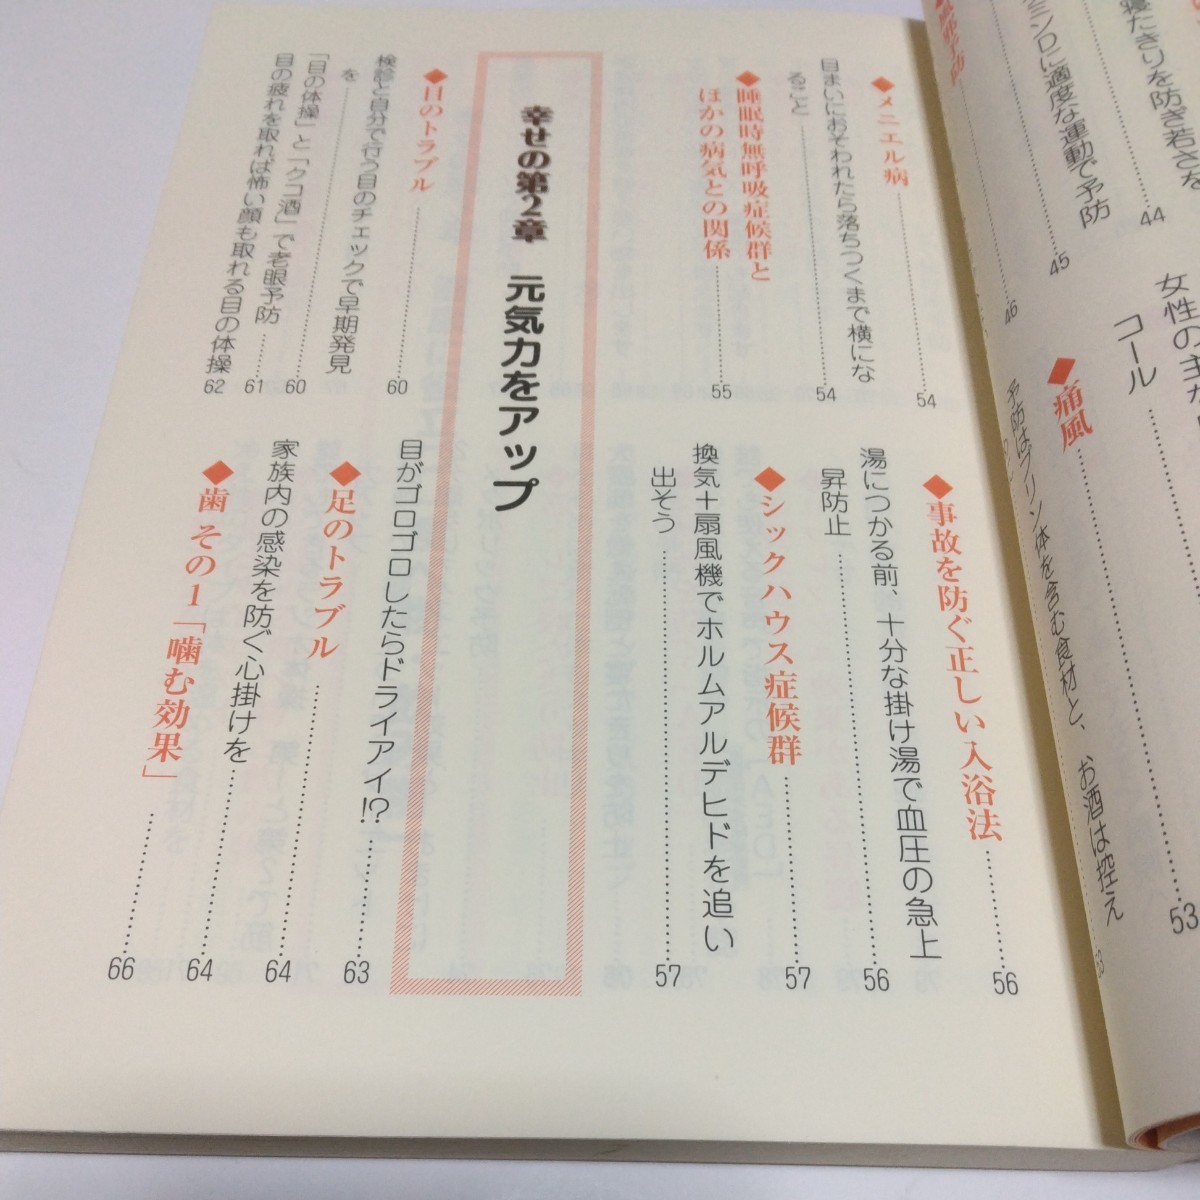 寝たきりを防ぎ若さを
44
ミンDに適度な運動で予防
45
46
女性の主な
コール
53
◆痛風
予防はプリン体を含む食材と、お酒は控え
53
◆メニエル病
54
目まいにおそわれたら落ちつくまで横にな
ること
54
◆睡眠時無呼吸症候群と
ほかの病気との関係
55
◆事故を防ぐ正しい入浴法
56
湯につかる前、十分な掛け湯で血圧の急上
昇防止
56
◆シックハウス症候群
57
換気＋扇風機でホルムアルデヒドを追い
出そう
57
幸せの第2章 元気力をアップ
◆目のトラブル
60
検診と自分で行う目のチェックで早期発見
を
60
「目の体操」と「クコ酒」で老眼予防
61
目の疲れを取れば怖い顔も取れる目の体操
62
目がゴロゴロしたらドライアイ!?
63
◆足のトラブル
64
家族内の感染を防ぐ心掛けを
64
◆歯 その1「噛む効果」
66